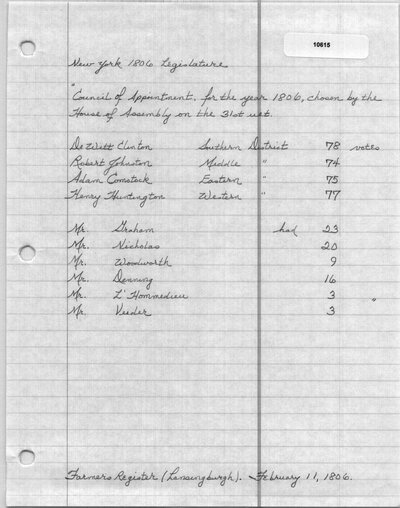 10815
New York 1806 Legislature
"Council of Appointment, for the year 1806, chosen by the
House of Assembly on the 31st ult.
DeWitt Clinton Southern District 78 votes
Robert Johnston Middle " 74
Adam Comstock Eastern " 75
Henry Huntington Western " 77
Mr. Graham had 23
Mr. Nicholas 20
Mr. Woodworth 9
Mr. Denning 16
Mr. L'Hommedieu 3 "
Mr. Veeder 3
Farmers Register (Lansingburgh). February 11, 1806.